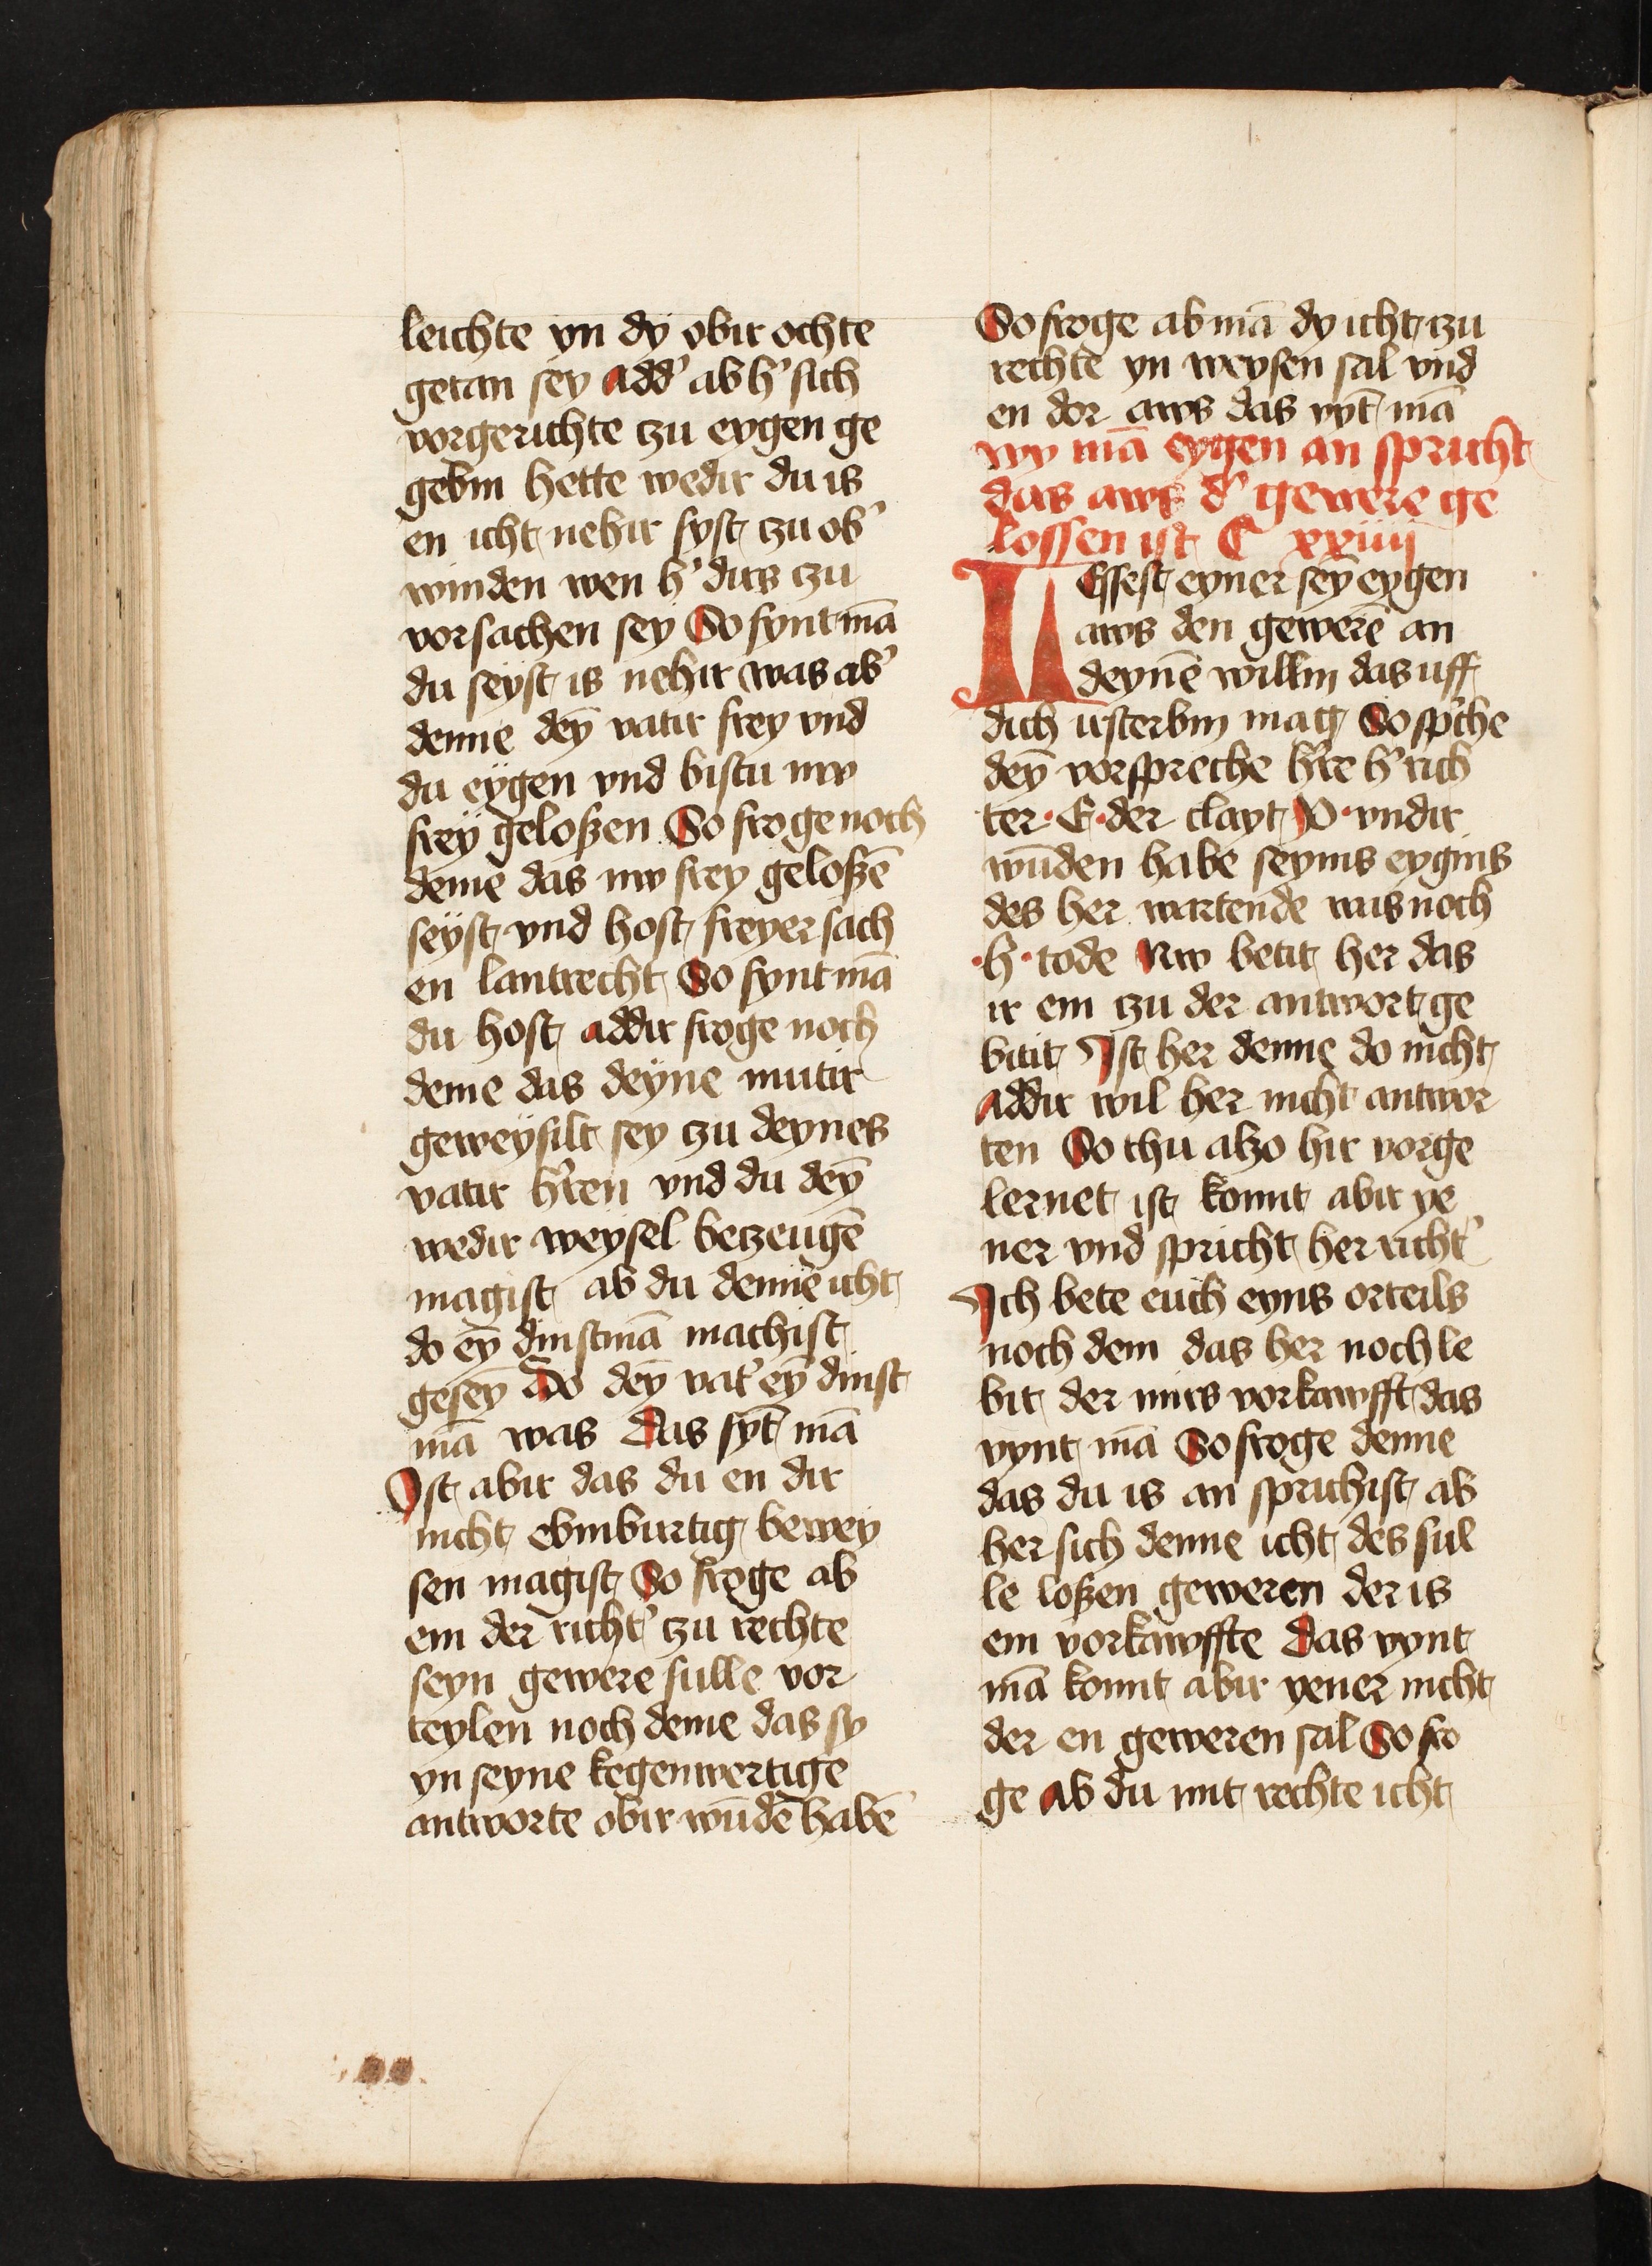 leichte yn dy obir ochte
getan sey add' ab h' sich
vorgerichte czu eygen ge
gebin hette wedir du is
en icht nehir syst czu ob'
winden wen h' dirs czu
vorsachen sey So fynt mā
du seyst is nehir was ab'
denne dey̅ vatir frey vnd
du eygen vnd bistu nw
frey geloßen So froge noch
deme das nw frey geloßē
seyst vnd host freyer sach
en lantrecht So fynt mā
du host addir froge noch
deme das deyne mutir
geweysilt sey czu deynes
vatir h'ren vnd du dey̅
wedir weysel beczeugē
magist ab du denne icht
do ey̅ dinstmā machist
gesey̅ Do dey̅ vat' ey̅ dinst
mā was Das fy̅t mā
Ist abir das du en dir
nicht ebinburtig bewey
sen magist So froge ab
em der richt' czu rechte
seyn gewere sulle vor
teylen noch deme das sy
yn seyne kegenwertige
antworte obir wūdē habē
So froge ab mā dy icht czu
rechte yn weysen sal vnd
en dor aws das vy̅t mā
wy mā eygen an spricht
das aws d' gewere ge
lossen ist C xxiiij
Lesset eyner sey̅ eygen
aws den gewerē an
deynē willin das uff
dich irsterbin mag So sp'che
dey̅ vorspreche h're h' rich
ter · E · der clayt P · vndir
wūden habe seynis eygins
des her wartende was noch
· h · tode Nw betit her das
ir em czu der antwort ge
bitit Ist her denne do nicht
addir wil her nicht antwor
ten So thu alzo hir vorge
lernet ist komt abir ye
ner vnd spricht her richt'
Ich bete euch eyns orteils
noch dem das her noch le
bit der mirs vorkawfft das
vynt mā So froge denne
das du is an sprichist ab
her sich denne icht des sul
le loßen geweren der is
em vorkawffte Das vynt
mā komt abir yener nicht
der en geweren sal So fro
ge ab du mit rechte icht